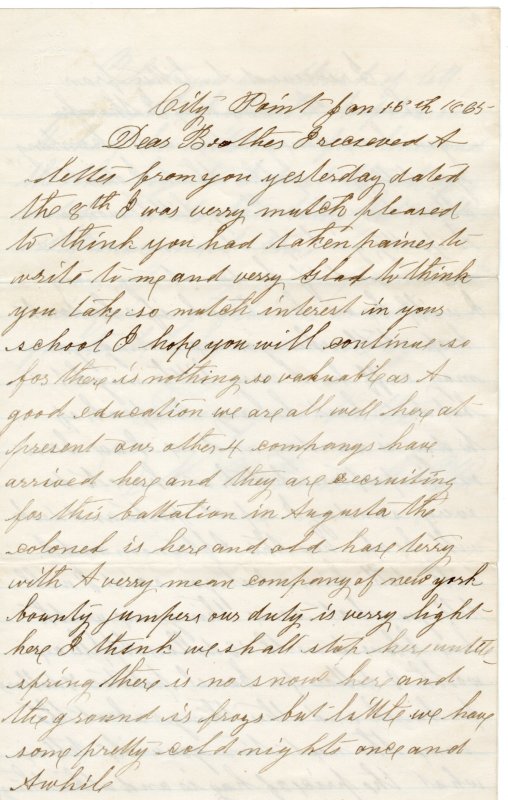 City Point Jan 15th 1865
Dear Brother I recieved A
letter from you yesterday dated
the 8th I was verry mutch pleased
to think you had taken paines to
write to me and verry Glad to think
you take so mutch interest in your
school I hope you will continue so
for there is nothing so valuable as A
good education we are all well here at
present our other 4 companys have
arrived here and they are recruiting
for this battalion in Augusta the
colonel is here and old hase terry
with A verry mean company of new york
bounty jumpers our duty is verry light
here I think we shall stop here untill
spring there is no snow here and
the ground is froze but little we have
some pretty cold nights once and
Awhile